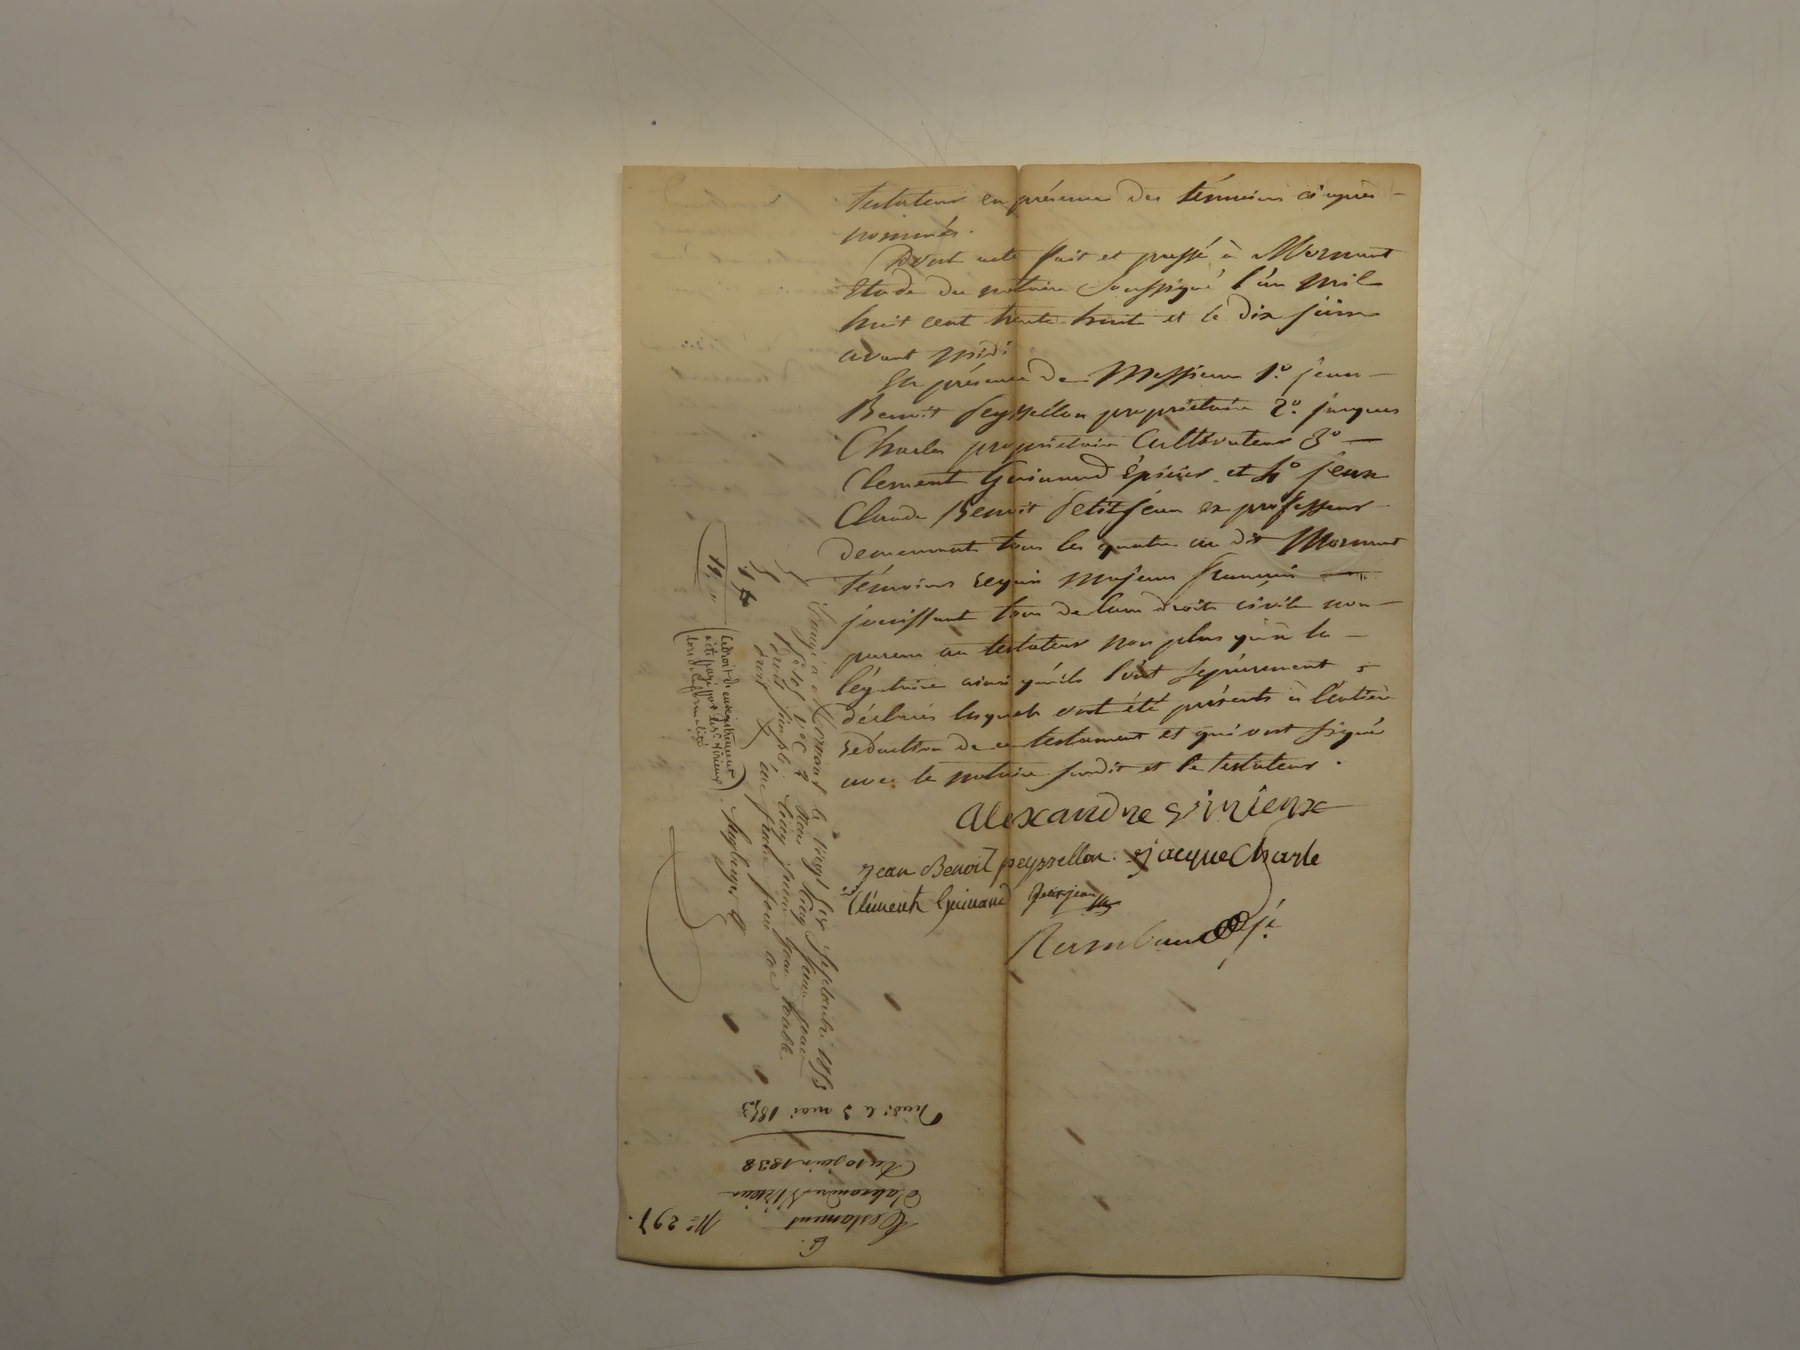 testateur en présence des témoins ci après
nommés.
Dont acte fait et passé à Mornant
Etude du notaire soussigné l'an mil
huit cent trente huit et le dix juin
avant midi
En présence de Messieurs 1º jean
Benoit Peyssellon propriétaire 2º jacques
Charles propriétaire Cultivateur 3º
Clement Guinand Épicier et 4º jean
Claude Benoit Petitjean ex professeur
demeurant tous les quatre au dit Mornant
témoins requis majeurs francais
jouissant tous de leurs droits civils non
parens au testateur non plus qu'à la
légataire ainsi qu'ils l'ont séparement
déclarés lesquels ont été présents à l'entière
rédaction de ce testament et qui ont signé
avec le notaire susdit et le testateur.
Alexandre Sirieux
jean Benoit peyssellon. jacque Charle
Clément Guinand petitjean
Rambaud
Enregistré à Mornant le vingt six Septembre 1853
fº 101 vº C 2 Reçu cinq francs
droit simple cinq francs
dixième
14
Le droit de enregistrement
a été payé par
Visé le 2 mai 1853
Du 10 juin 1838
D'alexandre Sirieux
Testament
Nº 297.
6.